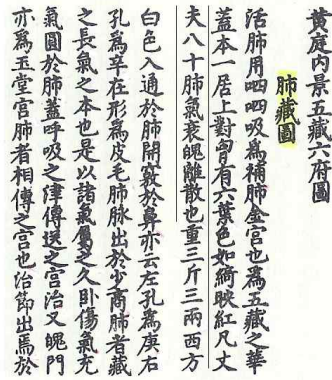 黄庭内景五藏六府圖
肺藏圖
活肺用呬呬吸爲補肺金宮也爲五藏之華
蓋本一居上對胷有六葉色如綺映紅凡丈
夫八十肺氣衰魄離散也重三斤三兩西方
白色入通於肺開竅於鼻亦云左孔爲庚右
孔爲辛在形爲皮毛肺脉出於少商肺者藏
之長氣之本也是以諸氣屬之久卧傷氣充
氣圓於肺蓋呼吸之津傳送之宮治又魄門
亦爲玉堂宮肺者相傳之宮也治節出焉於